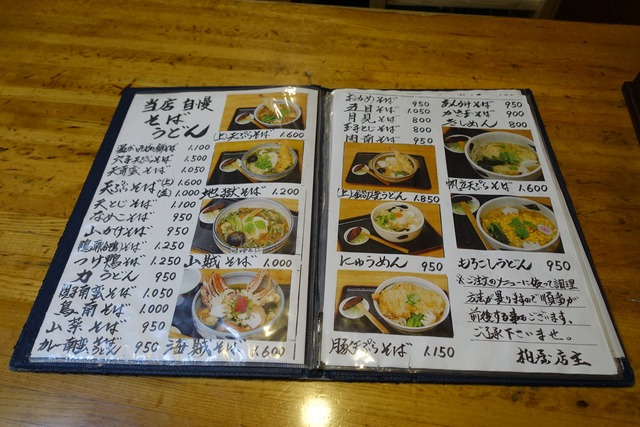 当店自慢
そば
うどん
1.100
穴子天ぷらそば 1.500
天南蛮そば 1.050
天ぷらそば (上) 1.600
(並) 1.000
天とじそば 1.100
なめこそば 950
山かけそば 950
1.250
つけ鴨そば 1.250
力うどん 950
1.050
鳥南そば 1.000
山菜そば 950
カレー南蛮 950
(上)天ぷらそば 1.600
地獄そば 1.200
山賊そば 1.000
海賊そば 1.600
おかめそば 950
五目そば 1.050
月見そば 800
玉子とじそば 800
肉南そば 950
(上)鍋焼うどん 1.850
にゅうめん 950
豚天ぷらそば 1.150
あんかけそば 950
900
800
帆立天ぷらそば 1.600
もろこしうどん 950
※ご注文のメニューに依って調理
方法が異り持ので順番が
前後する事もございます。
ご了承下さいませ。
柏屋店主